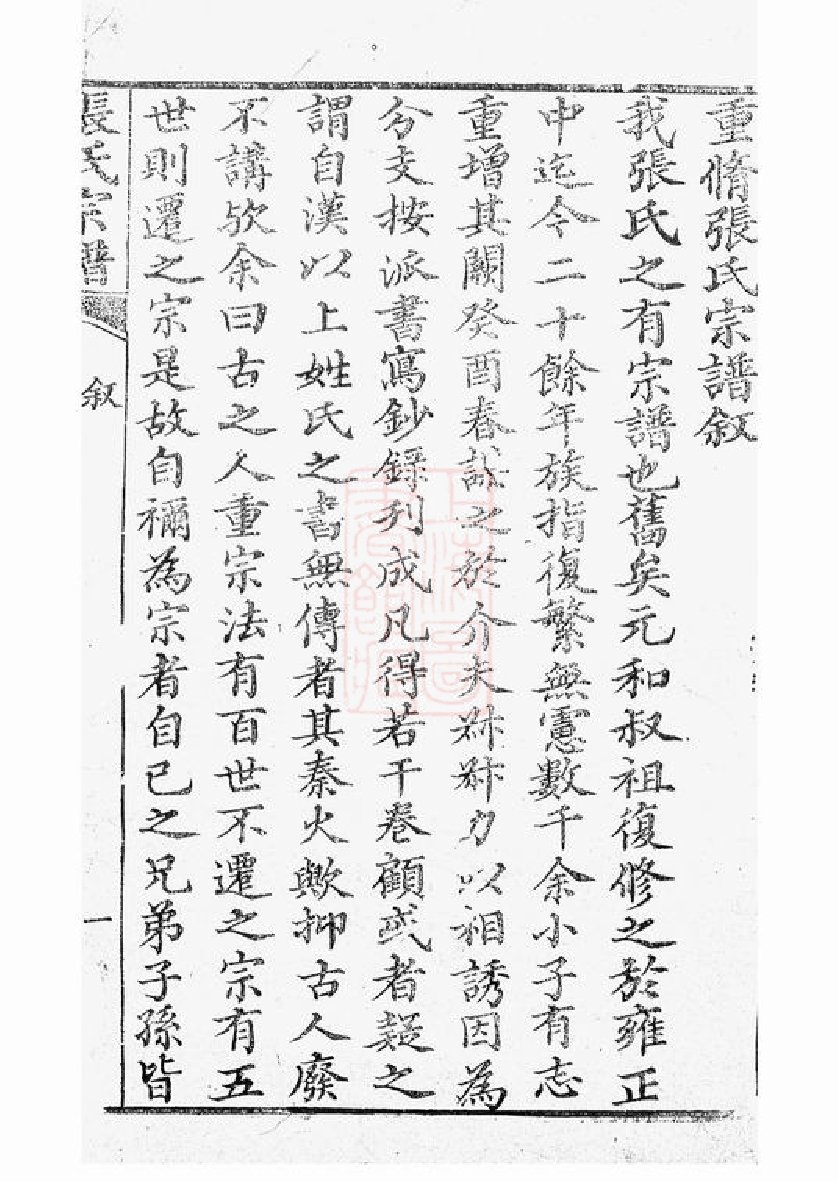 重脩張氏宗譜叙
我張氏之有宗譜也舊矣元和叔祖復修之於雍正
中迄今二十餘年族指復繁無慮數千余小子有志
重增其闕癸酉春謀之於介夫躋躋力以相誘因為
分支按派書寫鈔錄列成凡得若干卷顧或者疑之
謂自漢以上姓氏之書無傳者其秦火歟抑古人廢
不講欤余曰古之人重宗法有百世不遷之宗有五
世則遷之宗是故自禰為宗者自己之兄弟子孫皆
張氏宗譜
叙
一